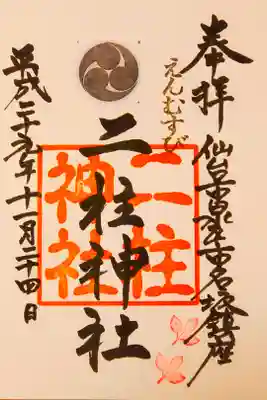 奉拝
仙臺泉市名坂鎮座
えんむすび
二柱神社
二柱
神社
平成二十九年十一月二十四日